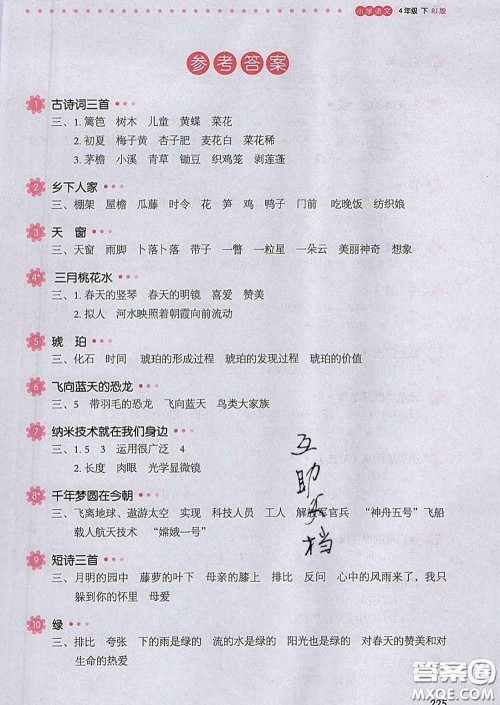 小学语文 4年级 下 RJ版
参考答案
1 古诗词三首
三、1. 篱笆 树木 儿童 黄蝶 菜花
2. 初夏 梅子黄 杏子肥 麦花白 菜花稀
3. 茅檐 小溪 青草 锄豆 织鸡笼 剥莲蓬
2 乡下人家
三、棚架 屋檐 瓜藤 时令 花 笋 鸡 鸭子 门前 吃晚饭 纺织娘
3 天窗
三、天窗 雨脚 卜落卜落 带子 一瞥 一粒星 一朵云 美丽神奇 想象
4* 三月桃花水
三、1. 春天的竖琴 春天的明镜 喜爱 赞美
2. 拟人 河水映照着朝霞向前流动
5 琥珀
三、化石 时间 琥珀的形成过程 琥珀的发现过程 琥珀的价值
6 飞向蓝天的恐龙
三、5 带羽毛的恐龙 飞向蓝天 鸟类大家族
7 纳米技术就在我们身边
三、1. 5 3 运用很广泛 4
2. 长度 肉眼 光学显微镜
8* 千年梦圆在今朝
三、飞离地球、遨游太空 实现 科技人员 工人 解放军官兵 “神舟五号”飞船
载人航天技术 “嫦娥一号”
9 短诗三首
三、月明的园中 藤萝的叶下 母亲的膝上 排比 反问 心中的风雨来了，我只
躲到你的怀里 母爱
10 绿
三、排比 夸张 下的雨是绿的 流的水是绿的 阳光也是绿的 对春天的赞美和对
生命的热爱
互助文档
答案圈
MXQE.COM
225